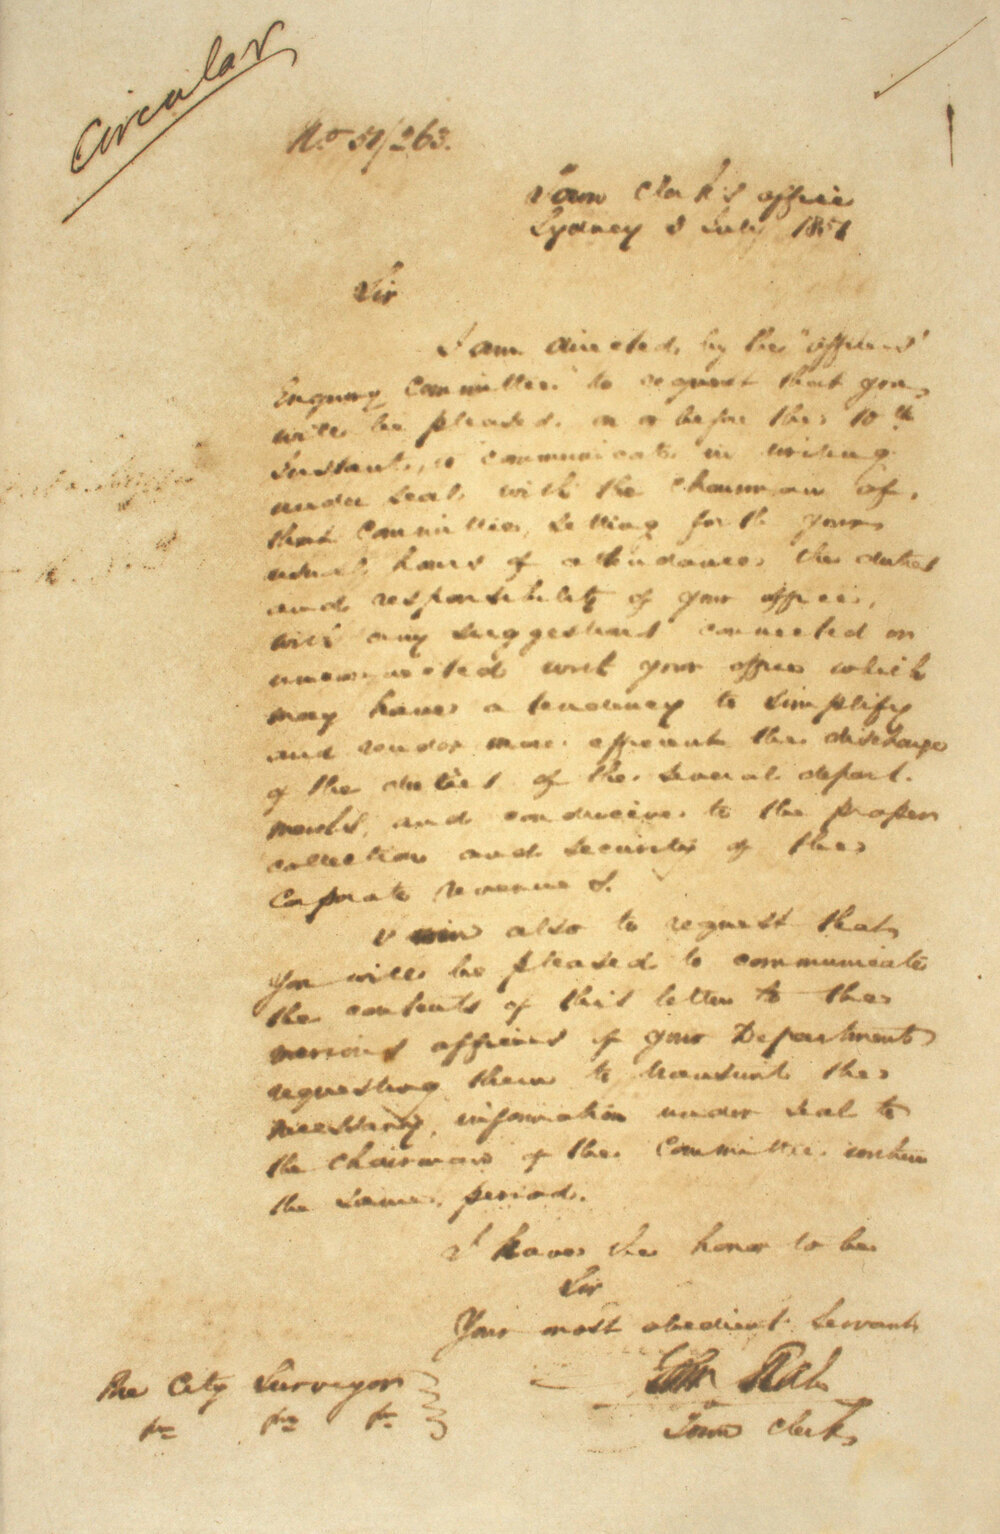 Circular
No 51/263.
Town Clerk's office
Sydney 8 July 1851
Sir
I am directed, by the "officers'
Enquiry Committee" to request that you,
will be pleased, on or before the 10th
Instant, to communicate in writing
under seal, with the Chairman of,
that Committee, setting forth your
usual hours of attendance, the duties
and responsibility of your office,
with any suggestions connected or
unconnected with your office which
may have a tendency to simplify
and render more efficient the discharge
of the duties of the several depart.
ments, and conducive to the proper
collection and security of the
Corporate revenues.
I am also to request that
you will be pleased to communicate
the contents of this letter to the
various officers of your Department
requesting them to transmit the
necessary, information under seal to
the Chairman of the Committee within
the same period.
I have the honor to be
Sir
Your most obedient Servant
John
Town Clerk
The City Surveyor